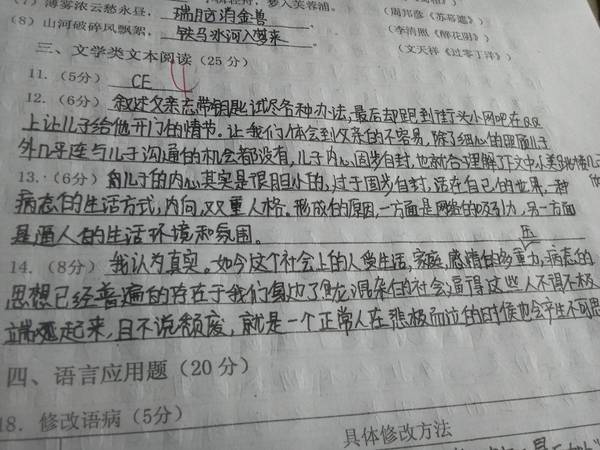 (7) 薄雾浓云愁永昼, 瑞脑消金兽。 (李清照《醉花阴》)
(8) 山河破碎风飘絮, 铁马冰河入梦来。 (文天祥《过零丁洋》)
三、文学类文本阅读(25分)
11. (5分) CE
12. (6分) 叙述父亲忘带钥匙试尽各种办法,最后却跑到街头小网吧在QQ
上让儿子给他开门的情节。让我们体会到父亲的不容易,除了细心的照顾儿子
外几乎连与儿子沟通的机会都没有,儿子内心固步自封,也就
13. (6分) 儿子的内心其实是很胆小的,过于固步自封,活在自己的世界,一种
病态的生活方式,内向,双重人格。形成的原因,一方面是网络的吸引力,另一方面
是逼人的生活环境和氛围。
14. (8分) 我认为真实。如今这个社会上的人受生活,家庭,感情的多重压力,病态的
思想已经普遍的存在于我们身边了,混杂的社会逼得这些人不得不极
端起来,且不说颓废,就是一个正常人在悲极而泣的时候也会产生不可思
四、语言应用题(20分)
18. 修改语病(5分)
具体修改方法